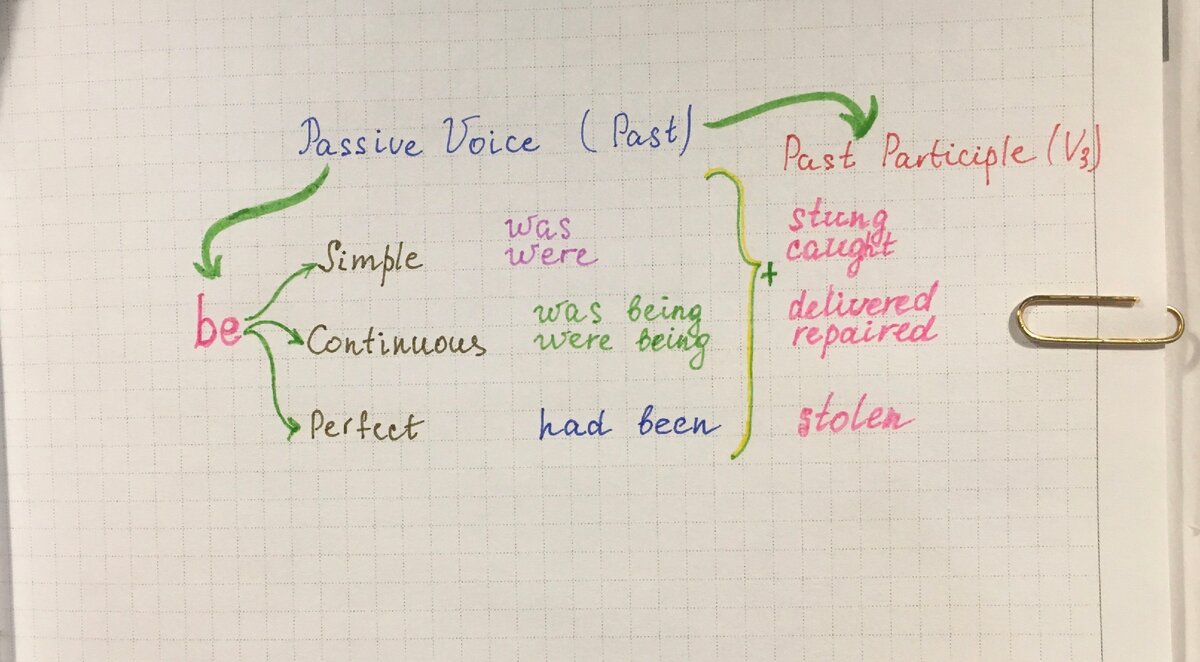 Passive Voice (Past)
Past Participle (V3)
be
Simple
was
were
Continuous
was being
were being
Perfect
had been
+
stung
caught
delivered
repaired
stolen